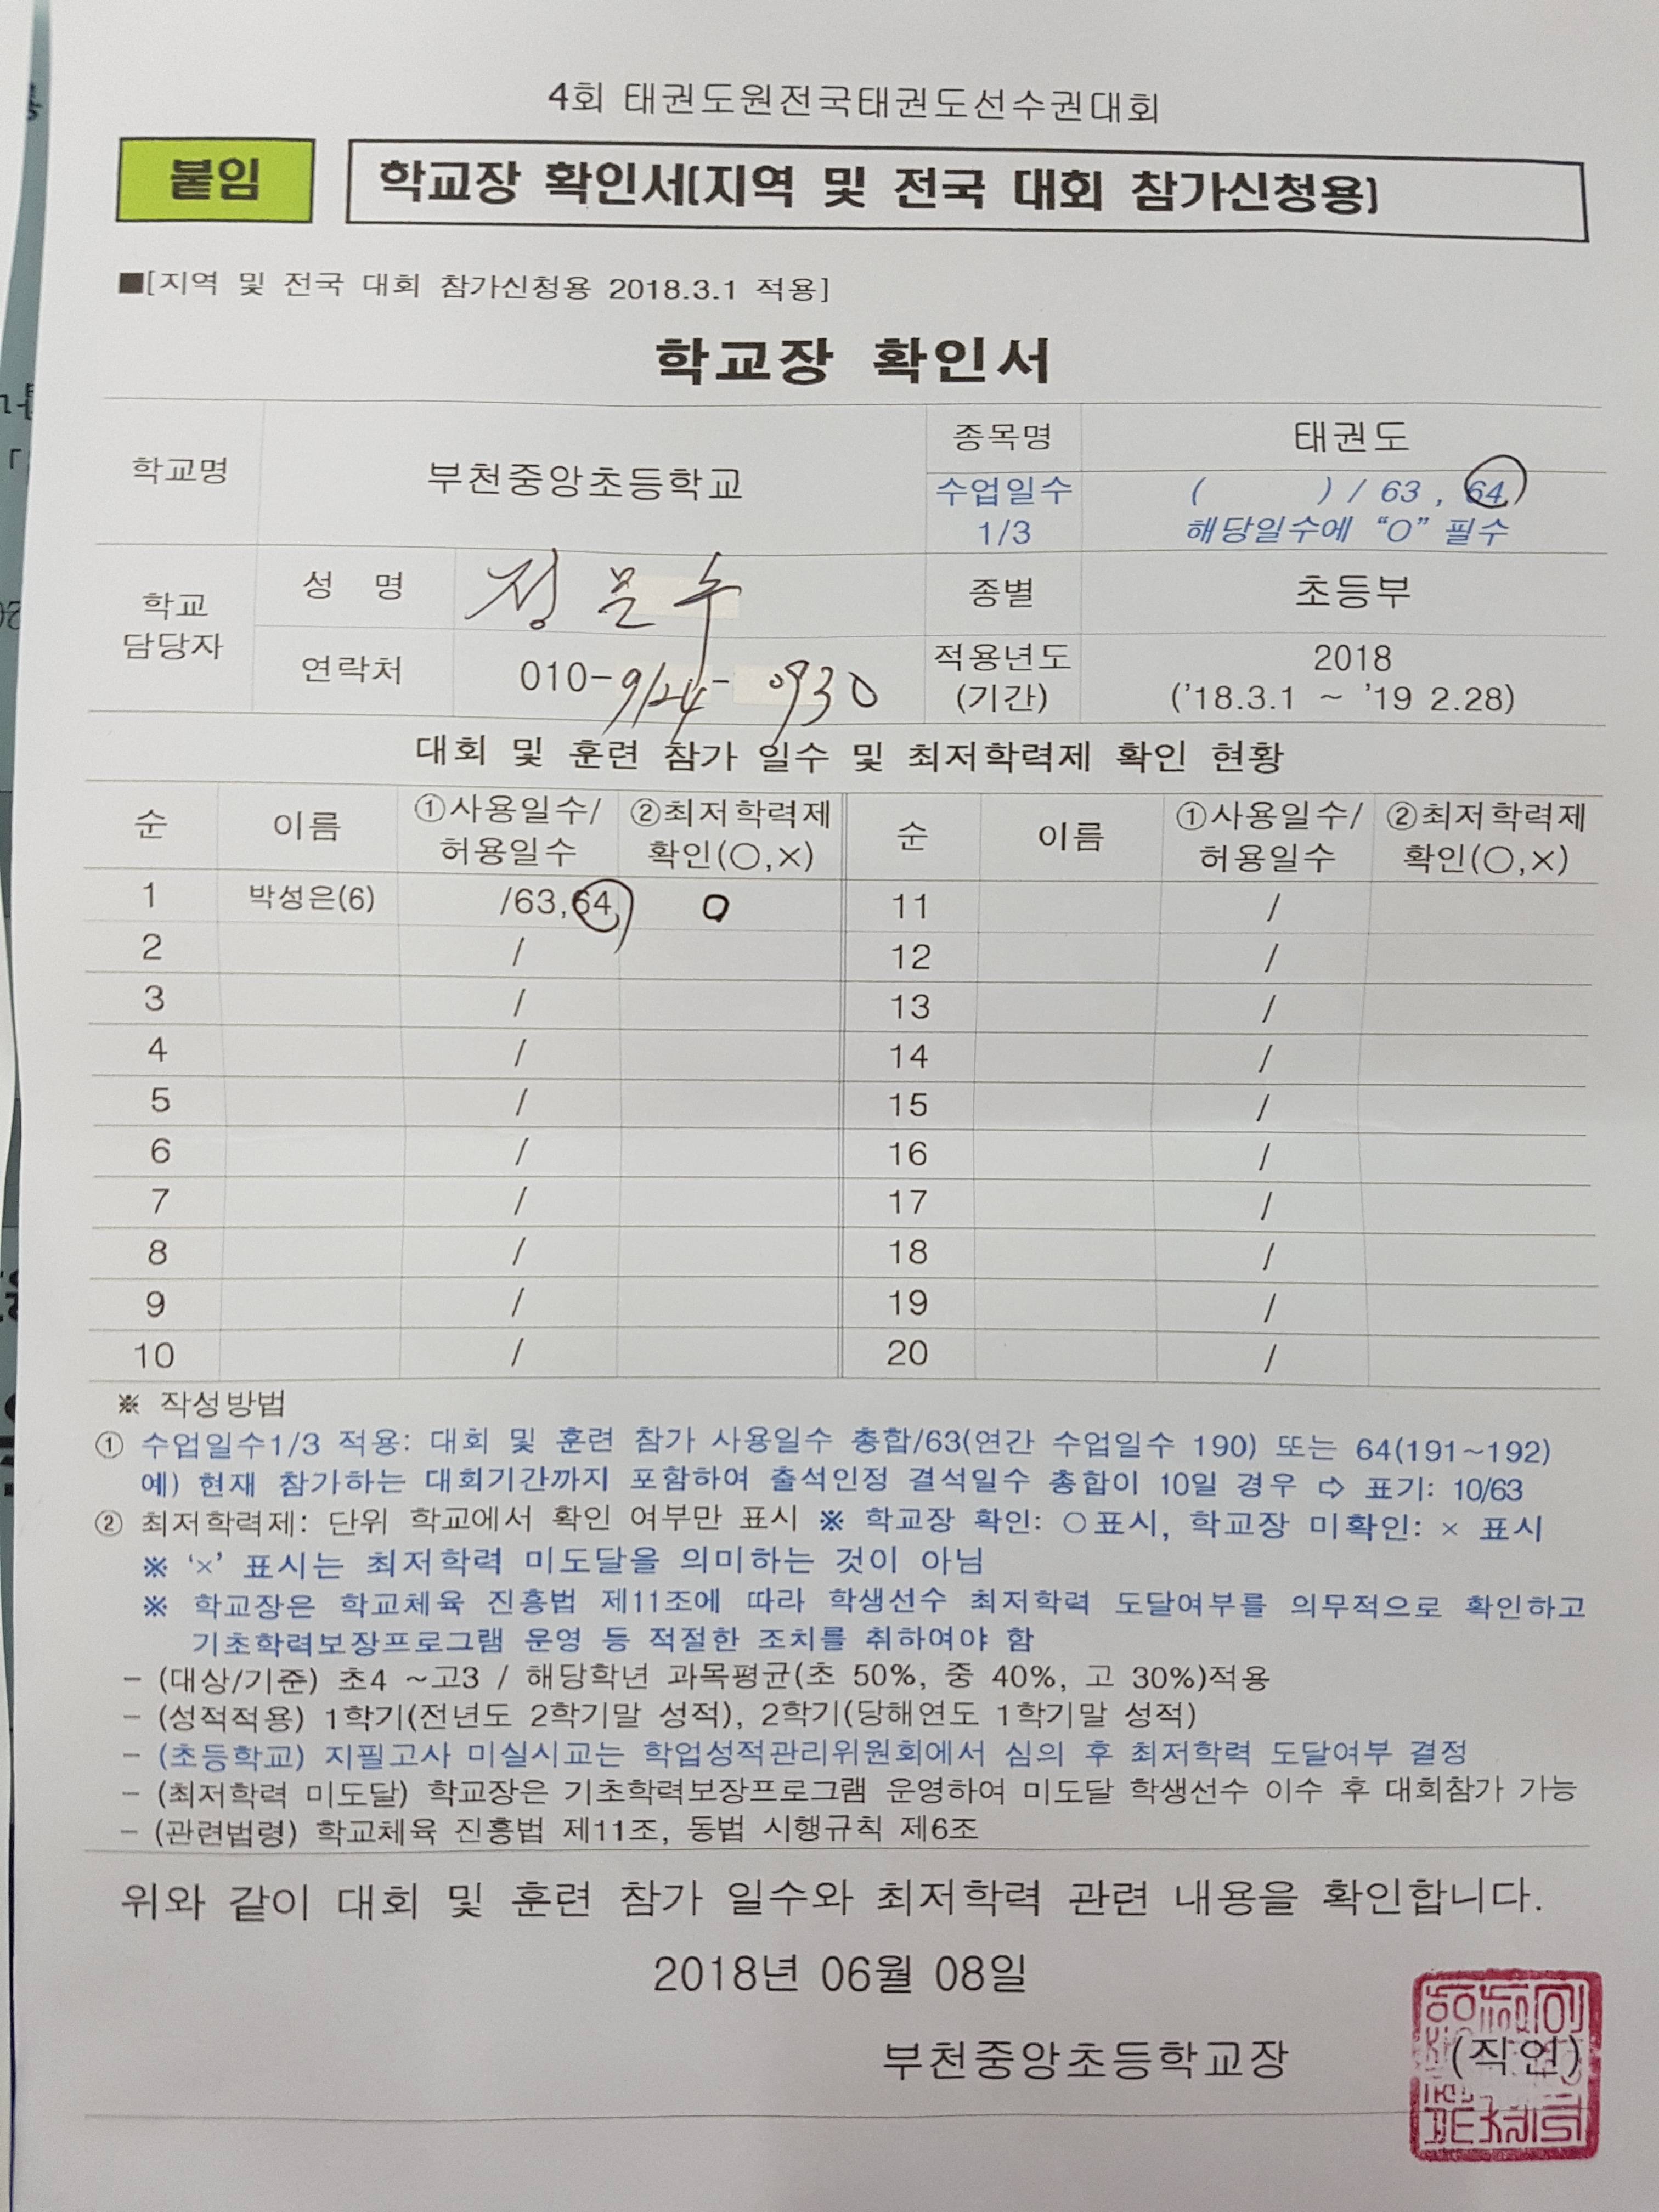 4회 태권도원전국태권도선수권대회
붙임
학교장 확인서[지역 및 전국 대회 참가신청용]
■[지역 및 전국 대회 참가신청용 2018.3.1 적용]
학교장 확인서
학교명 부천중앙초등학교 종목명 태권도
수업일수 1/3 ( ) / 63 , 64
해당일수에 “O” 필수
학교 담당자 성 명 정문수 종별 초등부
연락처 010-9124-0930 적용년도 (기간) 2018
('18.3.1 ~ '19 2.28)
대회 및 훈련 참가 일수 및 최저학력제 확인 현황
순 이름 ①사용일수/허용일수 ②최저학력제 확인(○,×) 순 이름 ①사용일수/허용일수 ②최저학력제 확인(○,×)
1 박성은(6) /63,64 O 11 /
2 / 12 /
3 / 13 /
4 / 14 /
5 / 15 /
6 / 16 /
7 / 17 /
8 / 18 /
9 / 19 /
10 / 20 /
※ 작성방법
① 수업일수1/3 적용: 대회 및 훈련 참가 사용일수 총합/63(연간 수업일수 190) 또는 64(191~192)
예) 현재 참가하는 대회기간까지 포함하여 출석인정 결석일수 총합이 10일 경우 ⇨ 표기: 10/63
② 최저학력제: 단위 학교에서 확인 여부만 표시 ※ 학교장 확인: ○표시, 학교장 미확인: × 표시
※ ‘×’ 표시는 최저학력 미도달을 의미하는 것이 아님
※ 학교장은 학교체육 진흥법 제11조에 따라 학생선수 최저학력 도달여부를 의무적으로 확인하고
기초학력보장프로그램 운영 등 적절한 조치를 취하여야 함
- (대상/기준) 초4 ~고3 / 해당학년 과목평균(초 50%, 중 40%, 고 30%)적용
- (성적적용) 1학기(전년도 2학기말 성적), 2학기(당해연도 1학기말 성적)
- (초등학교) 지필고사 미실시교는 학업성적관리위원회에서 심의 후 최저학력 도달여부 결정
- (최저학력 미도달) 학교장은 기초학력보장프로그램 운영하여 미도달 학생선수 이수 후 대회참가 가능
- (관련법령) 학교체육 진흥법 제11조, 동법 시행규칙 제6조
위와 같이 대회 및 훈련 참가 일수와 최저학력 관련 내용을 확인합니다.
2018년 06월 08일
부천중앙초등학교장 (직인)